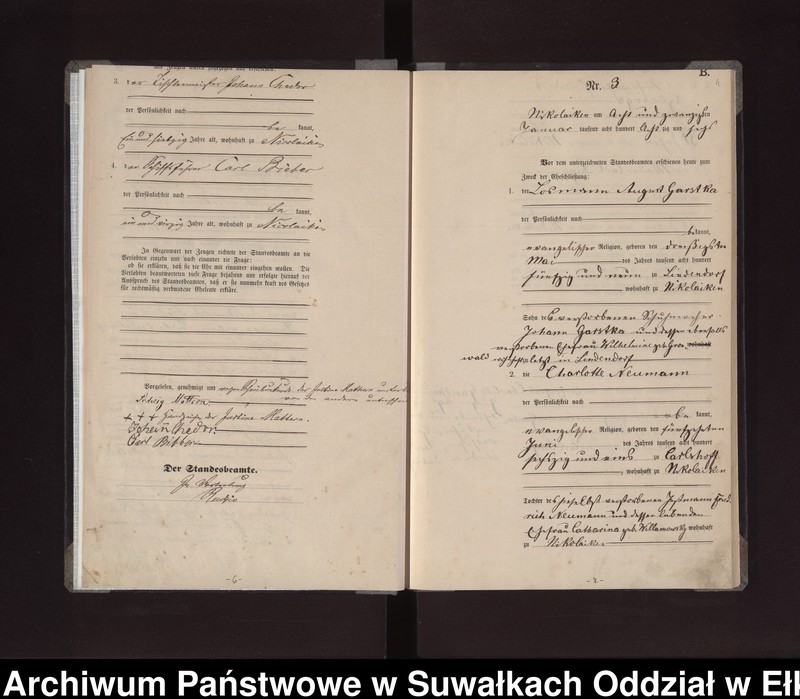 3. der Tischlermeister Johann Chedor
der Persönlichkeit nach
be kannt,
Ein und siebzig Jahre alt, wohnhaft zu Nicolaiken
4. der Schiffsführer Carl Bieber
der Persönlichkeit nach
be kannt,
ein und vierzig Jahre alt, wohnhaft zu Nicolaiken
In Gegenwart der Zeugen richtete der Standesbeamte an die
Verlobten einzeln und nach einander die Frage:
ob sie erklären, daß sie die Ehe mit einander eingehen wollen. Die
Verlobten beantworteten diese Frage bejahend und erfolgte hierauf der
Ausspruch des Standesbeamten, daß er sie nunmehr kraft des Gesetzes
für rechtmäßig verbundene Eheleute erkläre.
Vorgelesen, genehmigt und wegen der Justine
von den anderen unterschrieben
+ + + Handzeichen der Justine
Johann Chedor.
Carl
Der Standesbeamte.
In Vertretung
-6-
B.
Nr. 3
Nikolaiken am Acht und zwanzigsten
Januar tausend acht hundert Acht zig und sechs
Vor dem unterzeichneten Standesbeamten erschienen heute zum
Zweck der Eheschließung:
1. der Losmann August Garstka
der Persönlichkeit nach
be kannt,
evangelischer Religion, geboren den dreißigsten
Mai des Jahres tausend acht hundert
fünfzig und neun zu Lindendorf
wohnhaft zu Nikolaiken
Sohn des verstorbenen Schuhmacher
Johann Garstka und dessen ebenfalls
verstorbenen Ehefrau Wilhelmine geb. Gron wohnhaft
wald zuletzt in Lindendorf
2. die Charlotte Neumann
der Persönlichkeit nach
be kannt,
evangelischer Religion, geboren den fünfzehnten
Juni des Jahres tausend acht hundert
sechszig und eins zu Carlshoff
, wohnhaft zu Nikolaiken
Tochter des hieselbst verstorbenen Instmann Fried
rich Neumann und dessen lebenden
Ehefrau Catharina geb. Willamowsky wohnhaft
zu Nikolaiken
-7-
Archiwum Państwowe w Suwałkach Oddział w Eł